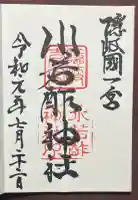 隠岐國一宮
水若酢神社
令和元年七月二十二日